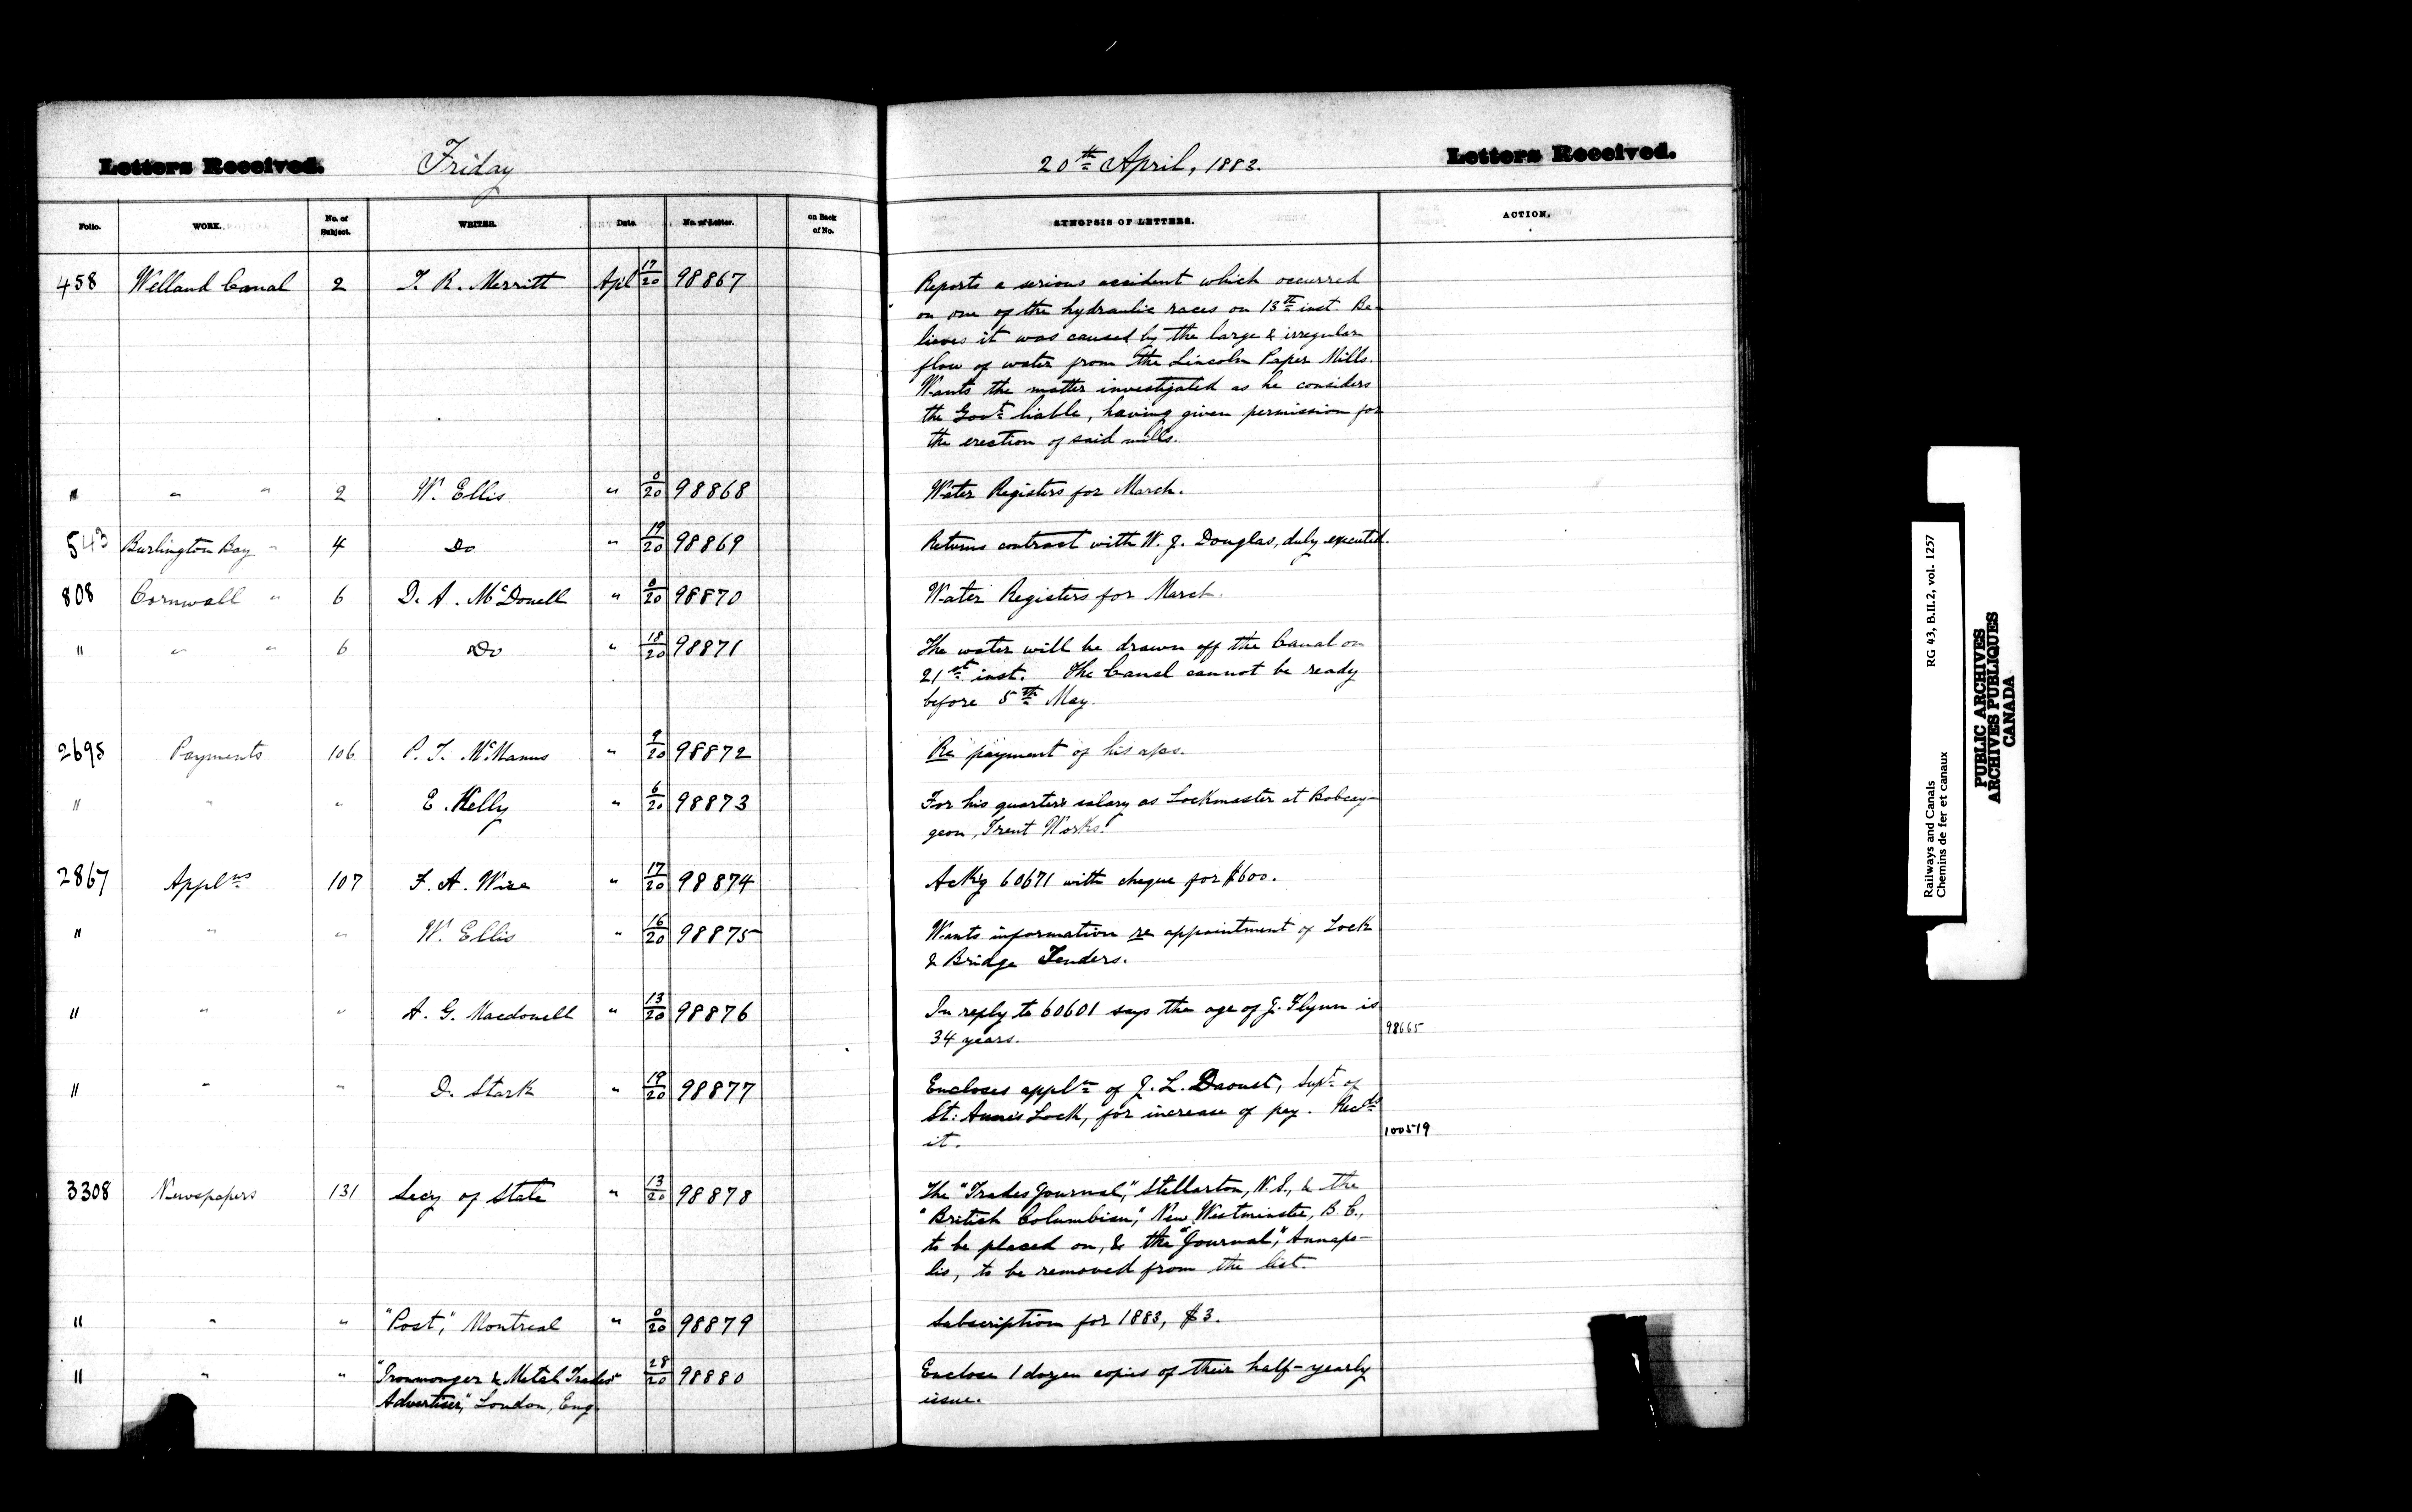 Letters Received. Friday 20th April, 1883. Letters Received.
Folio. WORK. No. of Subject. WRITER. Date. No. of Letter. on Back of No. SYNOPSIS OF LETTERS. ACTION.
458 Welland Canal 2 T. R. Merritt Apl 17/20 98867 Reports a serious accident which occurred
on one of the hydraulic races on 13th inst. Be-
lieves it was caused by the large & irregular
flow of water from the Lincoln Paper Mills.
Wants the matter investigated as he considers
the Govt liable, having given permission for
the erection of said mills.
" " " 2 W. Ellis " 0/20 98868 Water Registers for March.
543 Burlington Bay " 4 Do " 19/20 98869 Returns contract with W. J. Douglas, duly executed.
808 Cornwall " 6 D. A. McDonell " 0/20 98870 Water Registers for March.
" " " 6 Do " 18/20 98871 The water will be drawn off the Canal on
21st inst. The Canal cannot be ready
before 5th May.
2695 Payments 106 P. T. McManus " 9/20 98872 Re payment of his a/cs.
" " " E. Kelly " 6/20 98873 For his quarter's salary as Lockmaster at Bobcay-
geon, Trent Works.
2867 Applns 107 F. A. Wise " 17/20 98874 Ackg 60671 with cheque for $600.
" " " W. Ellis " 16/20 98875 Wants information re appointment of Lock
& Bridge Tenders.
" " " A. G. Macdonell " 13/20 98876 In reply to 60601 says the age of J. Flynn is
34 years. 98665
" " " D. Stark " 19/20 98877 Encloses appln of J. L. Daoust, Supt of
St: Anne's Lock, for increase of pay. Recds
it. 100519
3308 Newspapers 131 Secy of State " 13/20 98878 The "Trades Journal," Stellarton, N.S., & the
"British Columbian," New Westminster, B.C.,
to be placed on, & the "Journal," Annapo-
lis, to be removed from the list.
" " " "Post," Montreal " 0/20 98879 Subscription for 1883, $3.
" " " "Ironmonger & Metal Trades' 28/20 98880 Enclose 1 dozen copies of their half-yearly
Advertiser," London, Eng. issue.
Railways and Canals RG 43, B.II.2, vol. 1257
Chemins de fer et canaux
PUBLIC ARCHIVES
ARCHIVES PUBLIQUES
CANADA